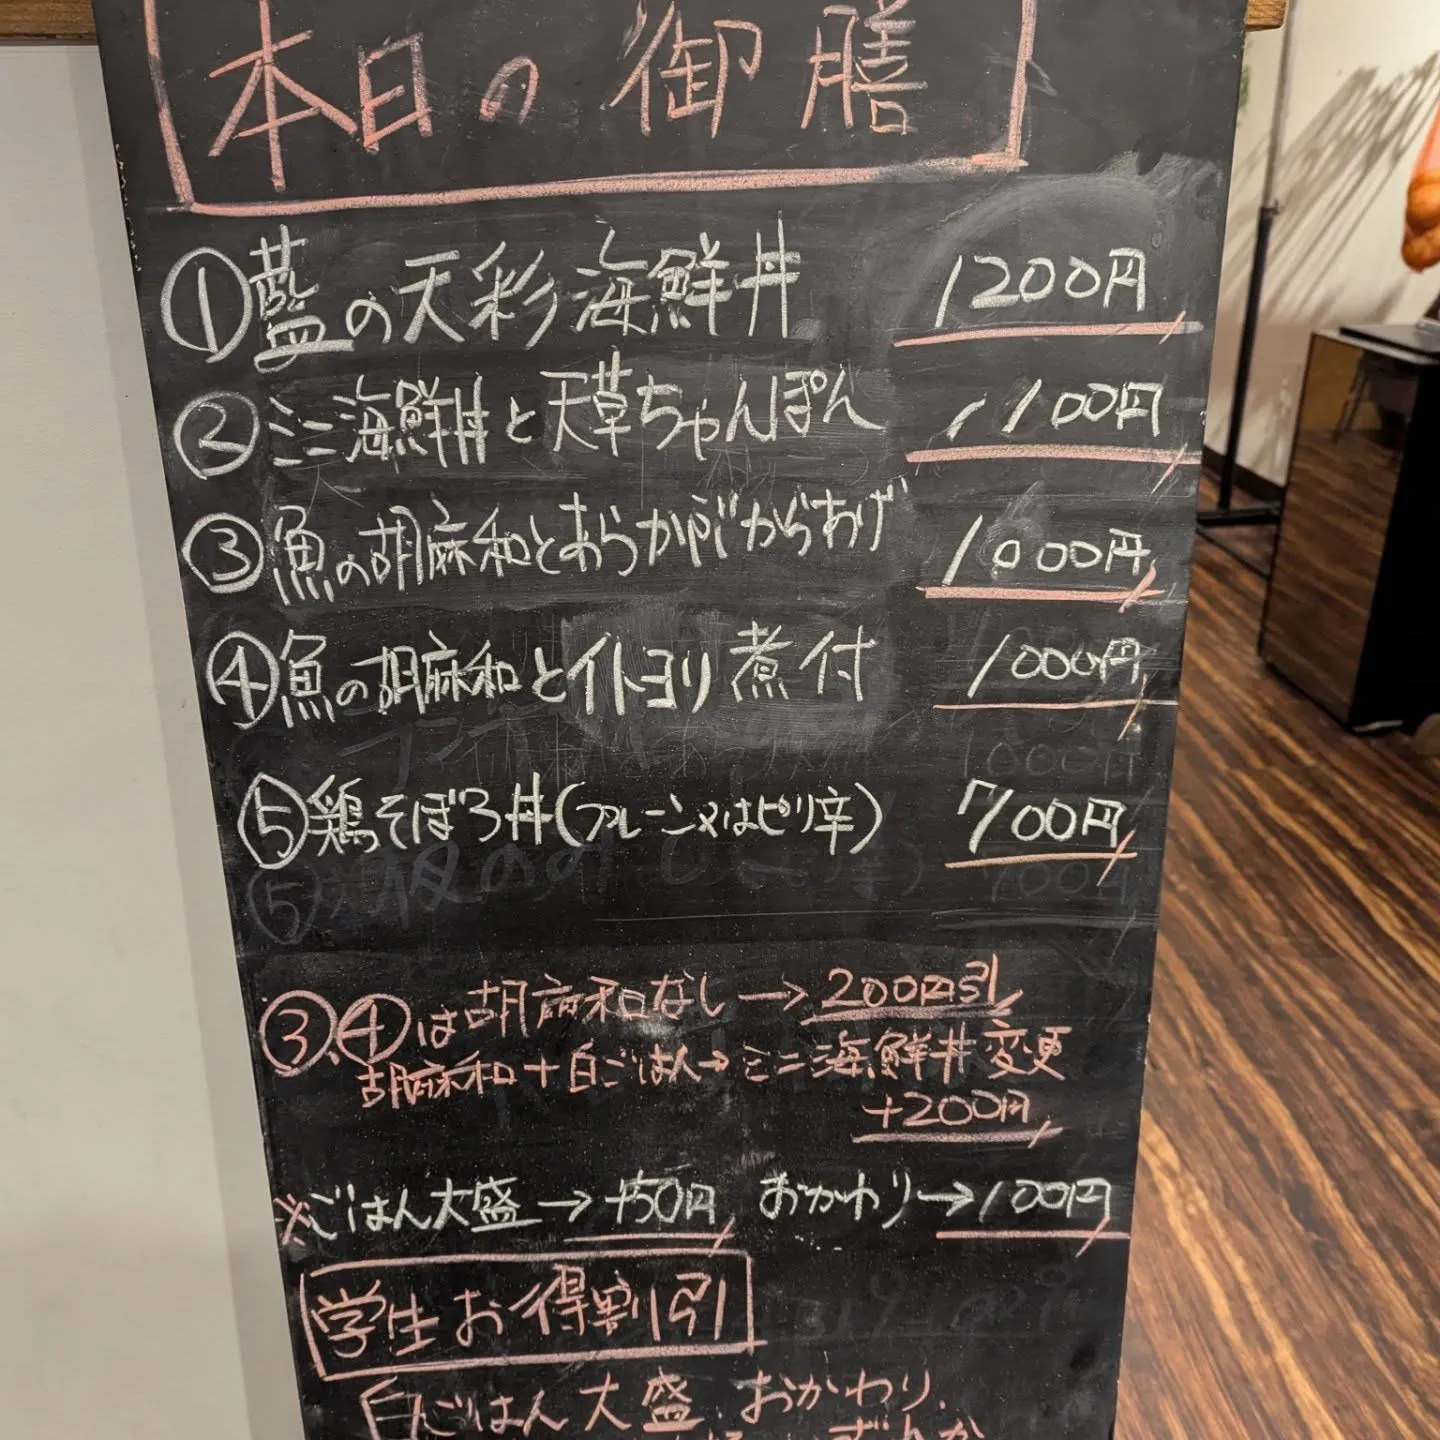 本日の御膳
①藍の天彩海鮮丼 1200円
②ミニ海鮮丼と天草ちゃんぽん 1100円
③魚の胡麻和とあらかぶからあげ 1000円
④魚の胡麻和とイトヨリ煮付 1000円
⑤鶏そぼろ丼(プレーン又はピリ辛) 700円
③、④は胡麻和なし→200円引
胡麻和+白ごはん→ミニ海鮮丼変更
+200円
※ごはん大盛→+50円 おかわり→100円
学生お得割引
白ごはん大盛、おかわり、